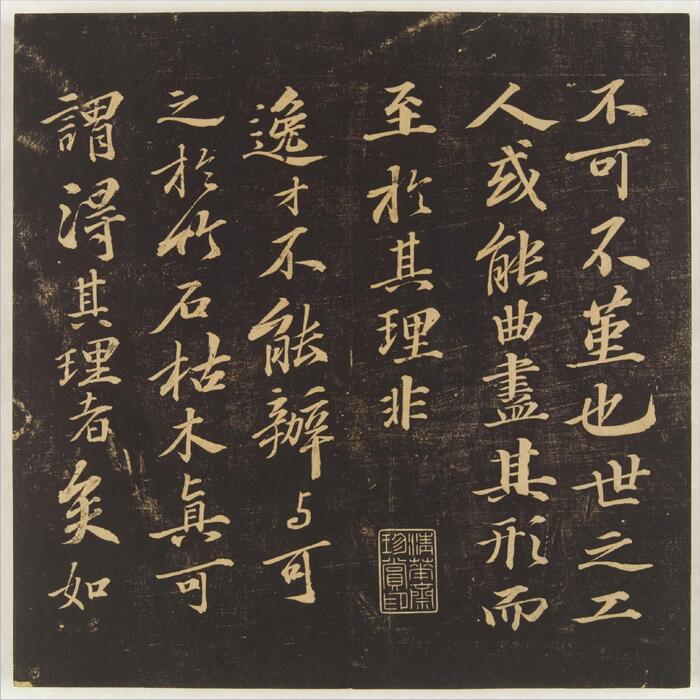 不可不堇也世之工
人或能曲盡其形而
至於其理非
逸才不能辦与可
之於竹石枯木真可
謂得其理者矣如
清華齋
珍賞印